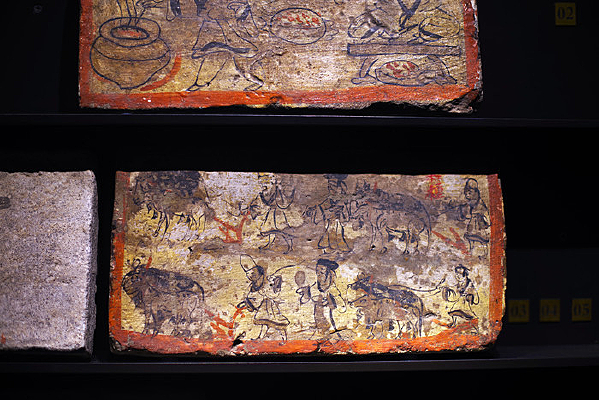 02
03
04
05